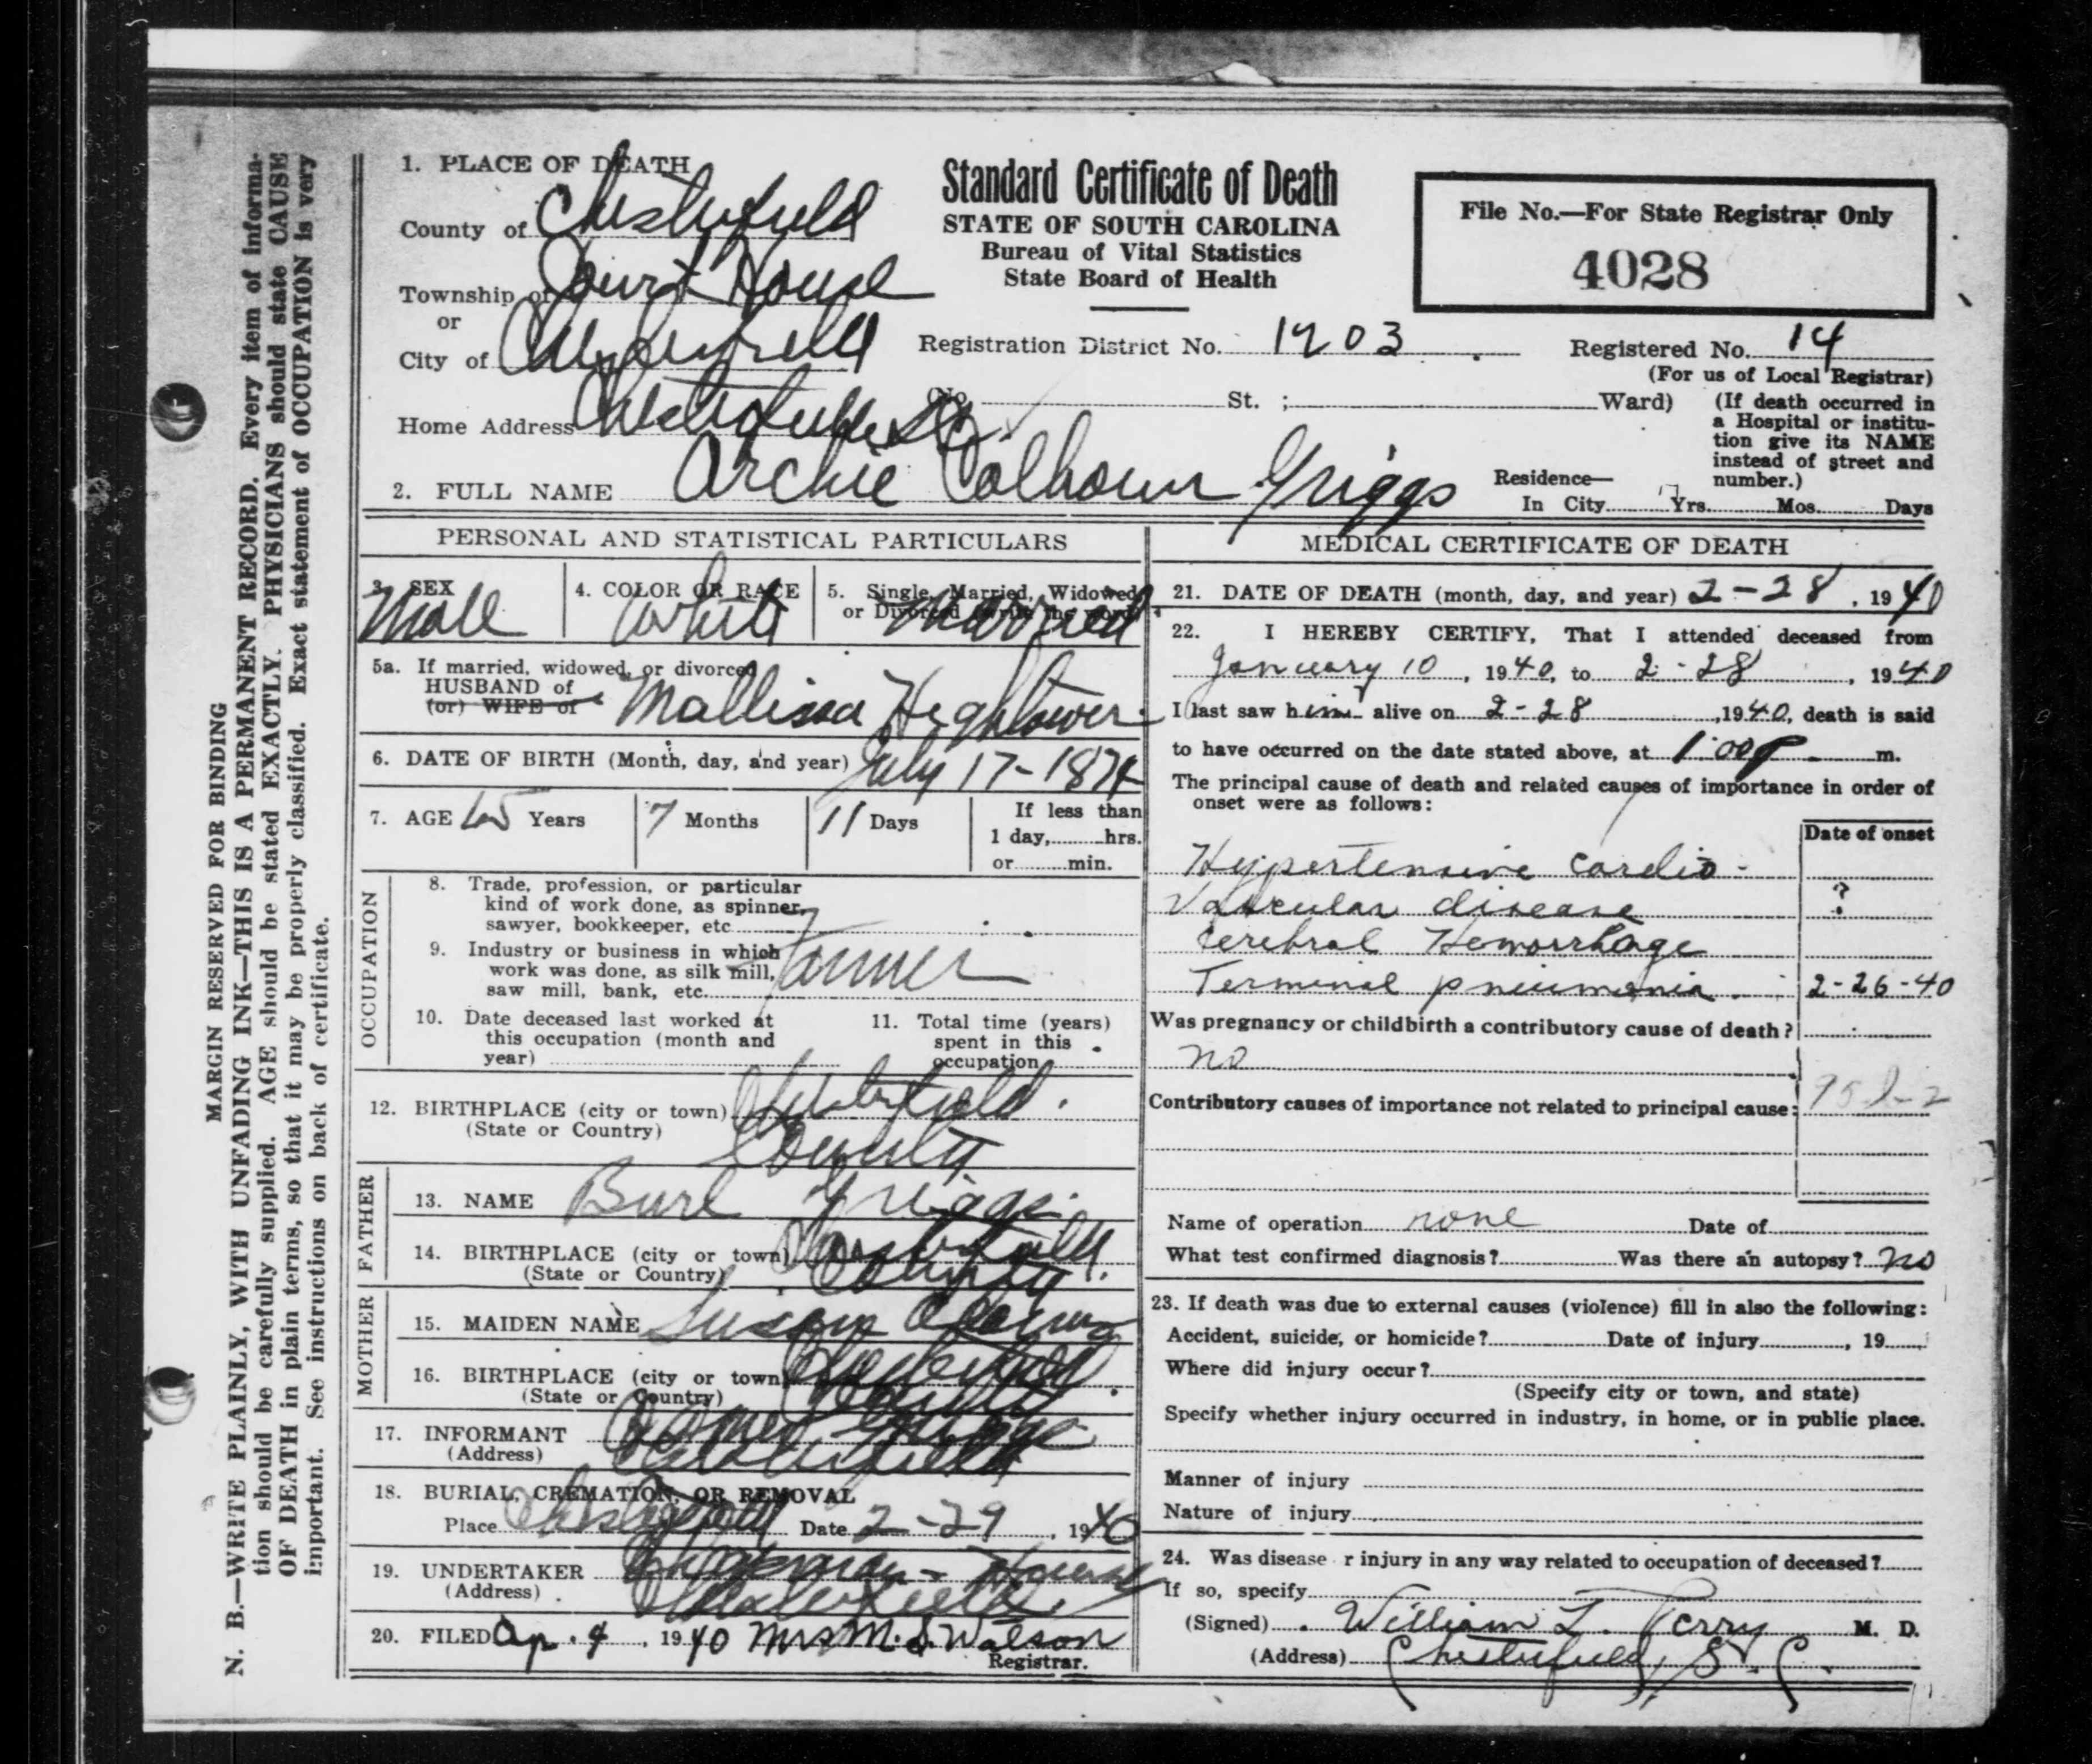 MARGIN RESERVED FOR BINDING
N. B.—WRITE PLAINLY, WITH UNFADING INK—THIS IS A PERMANENT RECORD. Every item of informa-
tion should be carefully supplied. AGE should be stated EXACTLY. PHYSICIANS should state CAUSE
OF DEATH in plain terms, so that it may be properly classified. Exact statement of OCCUPATION is very
important. See instructions on back of certificate.
Standard Certificate of Death
STATE OF SOUTH CAROLINA
Bureau of Vital Statistics
State Board of Health
File No.—For State Registrar Only
4028
1. PLACE OF DEATH
County of Chesterfield
Township of Court House
or
City of Chesterfield
Registration District No. 1203
Registered No. 14
(For us of Local Registrar)
Home Address Chesterfield S.C.
No. St. ; Ward)
(If death occurred in
a Hospital or institu-
tion give its NAME
instead of street and
number.)
2. FULL NAME Archie Calhoun Griggs
Residence—
In City Yrs. Mos. Days
PERSONAL AND STATISTICAL PARTICULARS
3. SEX
Male
4. COLOR OR RACE
White
5. Single, Married, Widowed
or Divorced (write the word)
Married
5a. If married, widowed, or divorced
HUSBAND of
(or) WIFE of
Mallissa Hightower
6. DATE OF BIRTH (Month, day, and year) July 17-1874
7. AGE 65 Years 7 Months 11 Days
If less than
1 day, hrs.
or min.
OCCUPATION
8. Trade, profession, or particular
kind of work done, as spinner,
sawyer, bookkeeper, etc.
9. Industry or business in which
work was done, as silk mill,
saw mill, bank, etc.
Farmer
10. Date deceased last worked at
this occupation (month and
year)
11. Total time (years)
spent in this
occupation
12. BIRTHPLACE (city or town) Chesterfield
(State or Country) County
FATHER
13. NAME Burl Griggs
14. BIRTHPLACE (city or town) Chesterfield
(State or Country) County
MOTHER
15. MAIDEN NAME Susan
16. BIRTHPLACE (city or town) Chesterfield
(State or Country) County
17. INFORMANT Griggs
(Address) Chesterfield
18. BURIAL, CREMATION, OR REMOVAL
Place Chesterfield Date 2-29, 1940
19. UNDERTAKER
(Address) Chesterfield
20. FILED Ap. 4, 1940 Mrs M. S. Watson
Registrar.
MEDICAL CERTIFICATE OF DEATH
21. DATE OF DEATH (month, day, and year) 2-28, 1940
22. I HEREBY CERTIFY, That I attended deceased from
January 10, 1940, to 2-28, 1940
I last saw him alive on 2-28, 1940, death is said
to have occurred on the date stated above, at 1:00 P m.
The principal cause of death and related causes of importance in order of
onset were as follows:
Date of onset
Hypertensive cardio-
Vascular disease ?
Cerebral Hemorrhage
Terminal pneumonia. 2-26-40
Was pregnancy or childbirth a contributory cause of death?
no
Contributory causes of importance not related to principal cause:
Name of operation none Date of
What test confirmed diagnosis? Was there an autopsy? no
23. If death was due to external causes (violence) fill in also the following:
Accident, suicide, or homicide? Date of injury, 19
Where did injury occur?
(Specify city or town, and state)
Specify whether injury occurred in industry, in home, or in public place.
Manner of injury
Nature of injury
24. Was disease r injury in any way related to occupation of deceased?
If so, specify
(Signed) William L. Perry M. D.
(Address) Chesterfield, S. C.